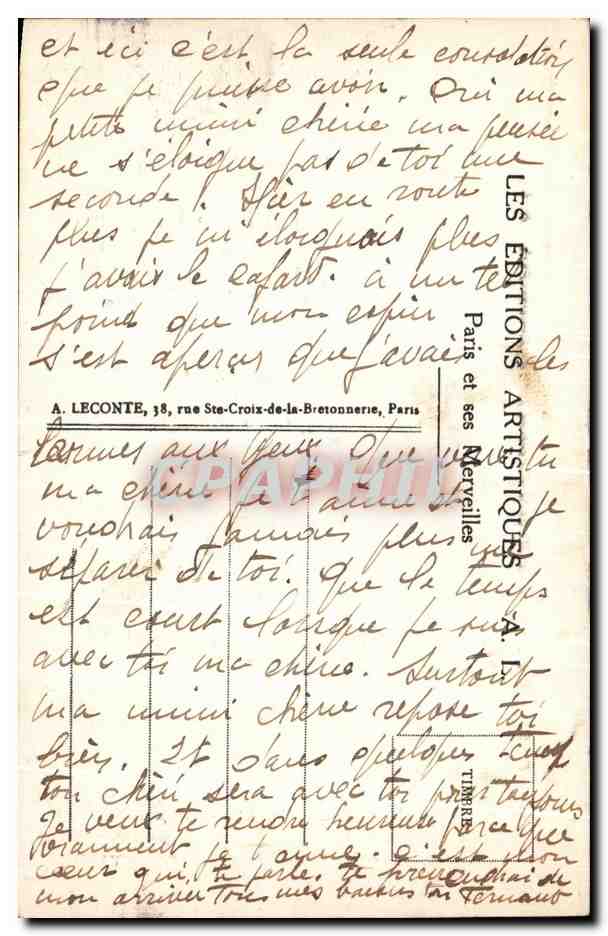 et ici c'est la seule consolation
que je puisse avoir. Oui ma
petite mimi chérie ma pensée
ne s'éloigne pas de toi une
seconde. Hier en route
plus je m'éloignais plus
j'avais le cafard. à un tel
point que mon copin
s'est aperçus que j'avais les
A. LECONTE, 38, rue Ste-Croix-de-la-Bretonnerie, Paris
larmes aux yeux. Que veux tu
ma chérie je t'aime et je
voudrais jamais plus me
séparer de toi. Que le temps
est court lorsque je suis
avec toi ma chérie. Surtout
ma mimi chérie repose toi
bien. Et dans quelques temps
ton chéri sera avec toi pour toujours
Je veux te rendre heureuse parce que
vraiment je t'aime. c'est mon
cœur qui te parle. te préviendrai de
mon arrivée tous mes baisers ton Fernand
LES ÉDITIONS ARTISTIQUES A. L.
Paris et ses Merveilles
TIMBRE
CPAPHIL